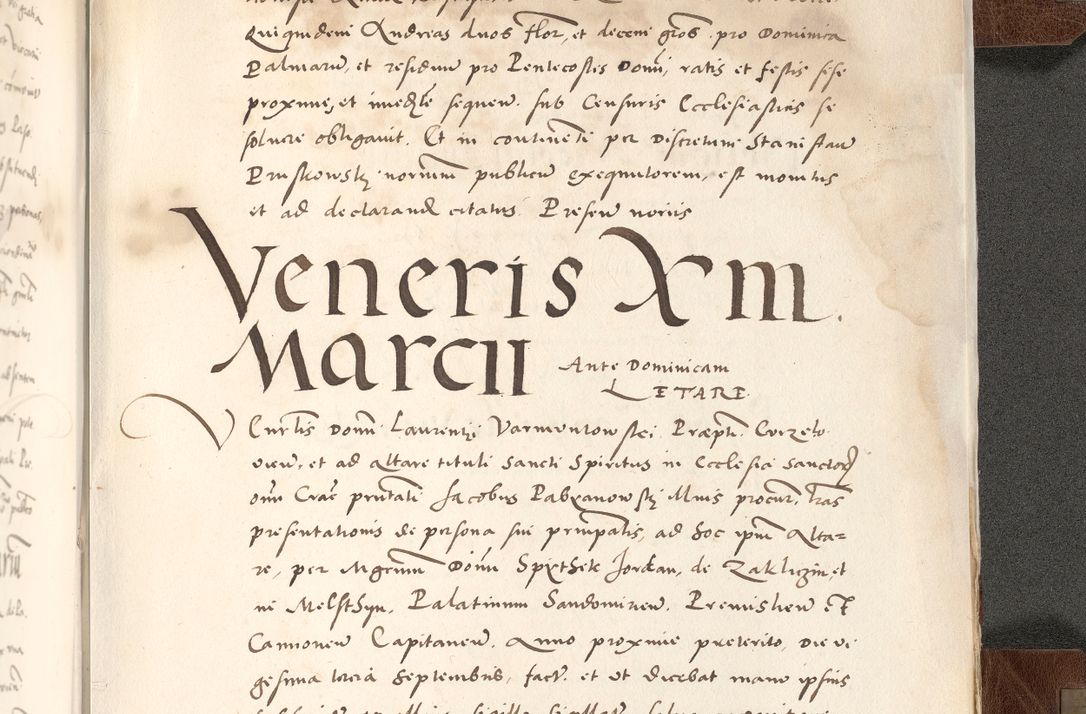 Quiquideni Andreas duos flor, et deceni gros. pro Dominica
Palmarū, et residuū pro Pentecostes Domi, ratis et festis sese
proxime, et imedte sequen. sub Censuris Ecclesiasticis se
soluere obligauit. Et in continenti per Discretum Stanislau
Pruskowskj notrium publicu exequutorem, est monitus
et ad declarand citatus. Presen notiis
Veneris XIII.
Marcii
Ante Dominicam
LETARE.
Curtis Domi Laurentzi Varmuntowskei. Præpti. Corzelo
vien, et ad Altare tituli Sancti Spiritus in Ecclesia Sanctor
om Crac pntati Jacobus Pabyanowskj Mins procur, tras
presentationis de persona sui principalis, ad hoc ipm Alta=
re, per Mgcum Domi Spythek Jordan, de Zakliczin, et
ni Melsthyn. Palatinum Sandomirien. Premislien et
Cannonen Capitaneu. Anno proxime preterito, die vi
gesima tercia Septembris, fact. et ut dicebat manu ipsius